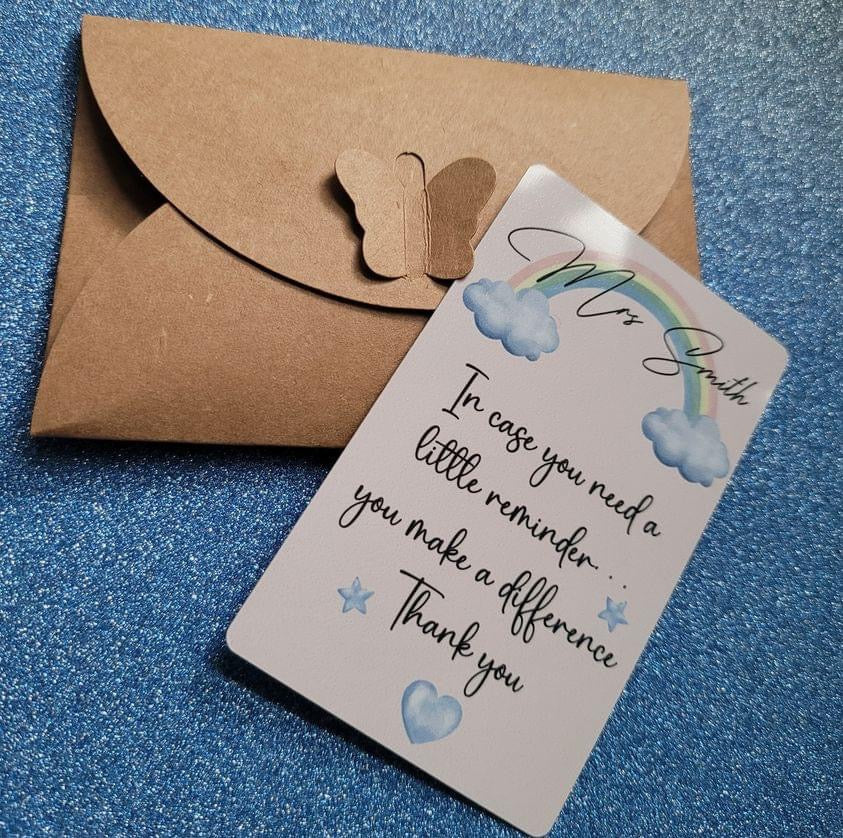 Mrs Smith
In case you need a
little reminder...
you make a difference
Thank you